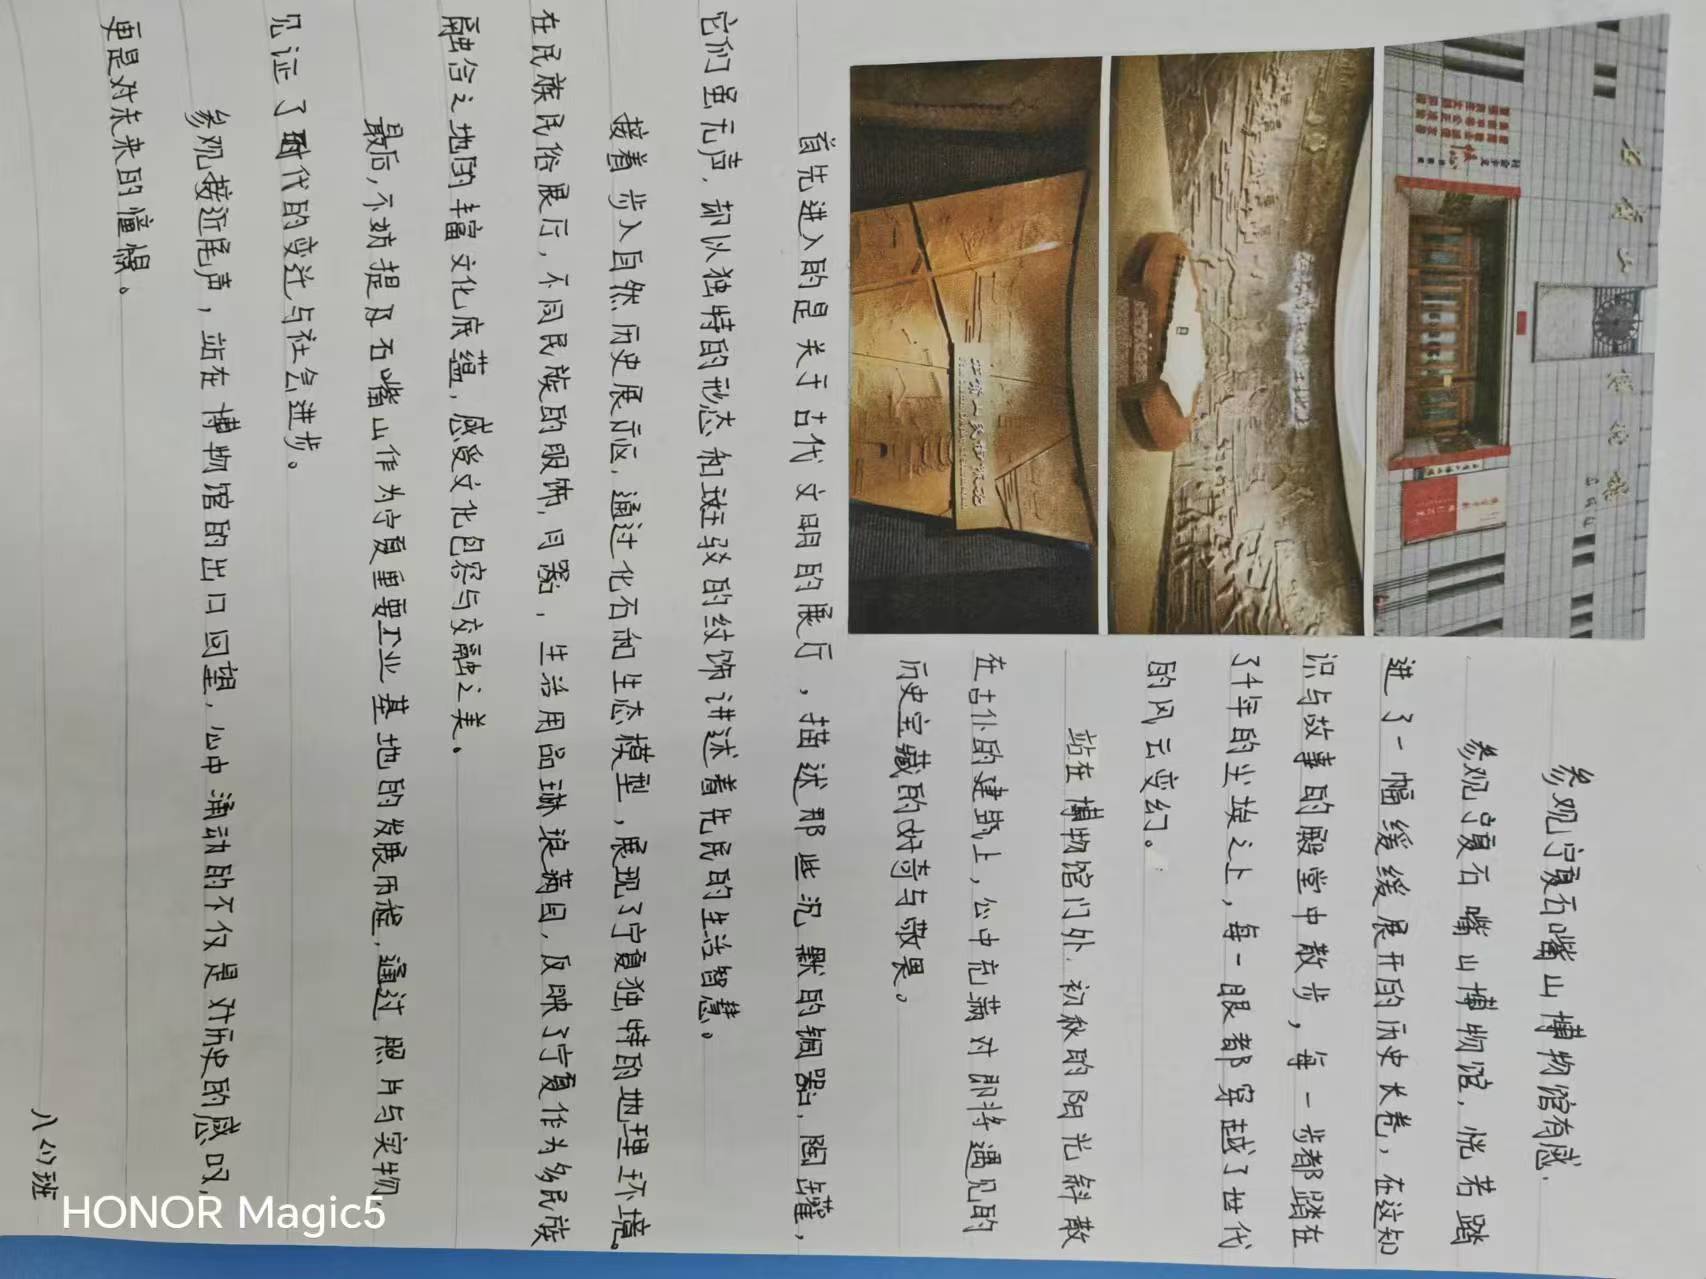 参观宁夏石嘴山博物馆有感.
参观宁夏石嘴山博物馆，恍若踏
进了一幅缓缓展开的历史长卷，在这知
识与故事的殿堂中散步，每一步都踏在
了千年的尘埃之上，每一眼都穿越了世代
的风云变幻。
站在博物馆门外.初秋的阳光斜散
在古仆的建筑上，心中充满对即将遇见的
历史宝藏的好奇与敬畏。
首先进入的是关于古代文明的展厅，描述那些沉默的铜器、陶罐，
它们虽无声，却以独特的形态和斑驳的纹饰讲述着先民的生活智慧。
接着步入自然历史展示区，通过化石和生态模型，展现了宁夏独特的地理环境。
在民族民俗展厅，不同民族的服饰，用器，生活用品琳琅满目，反映了宁夏作为多民族
融合之地的丰富文化底蕴，感受文化包容与交融之美。
最后，不妨提及石嘴山作为宁夏重要工业基地的发展历程，通过照片与实物，
见证了时代的变迁与社会进步。
参观接近尾声，站在博物馆的出口回望，心中涌动的不仅是对历史的感叹，
更是对未来的憧憬。
八(1)班
石嘴山博物馆
HONOR Magic5